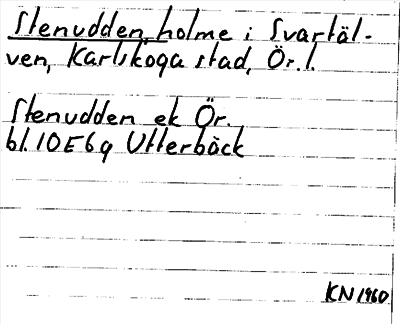 Stenudden, holme i Svartäl-
ven, Karlskoga stad, Ör. l.
Stenudden ek Ör.
bl. 10E6g Utterbäck
KN 1960